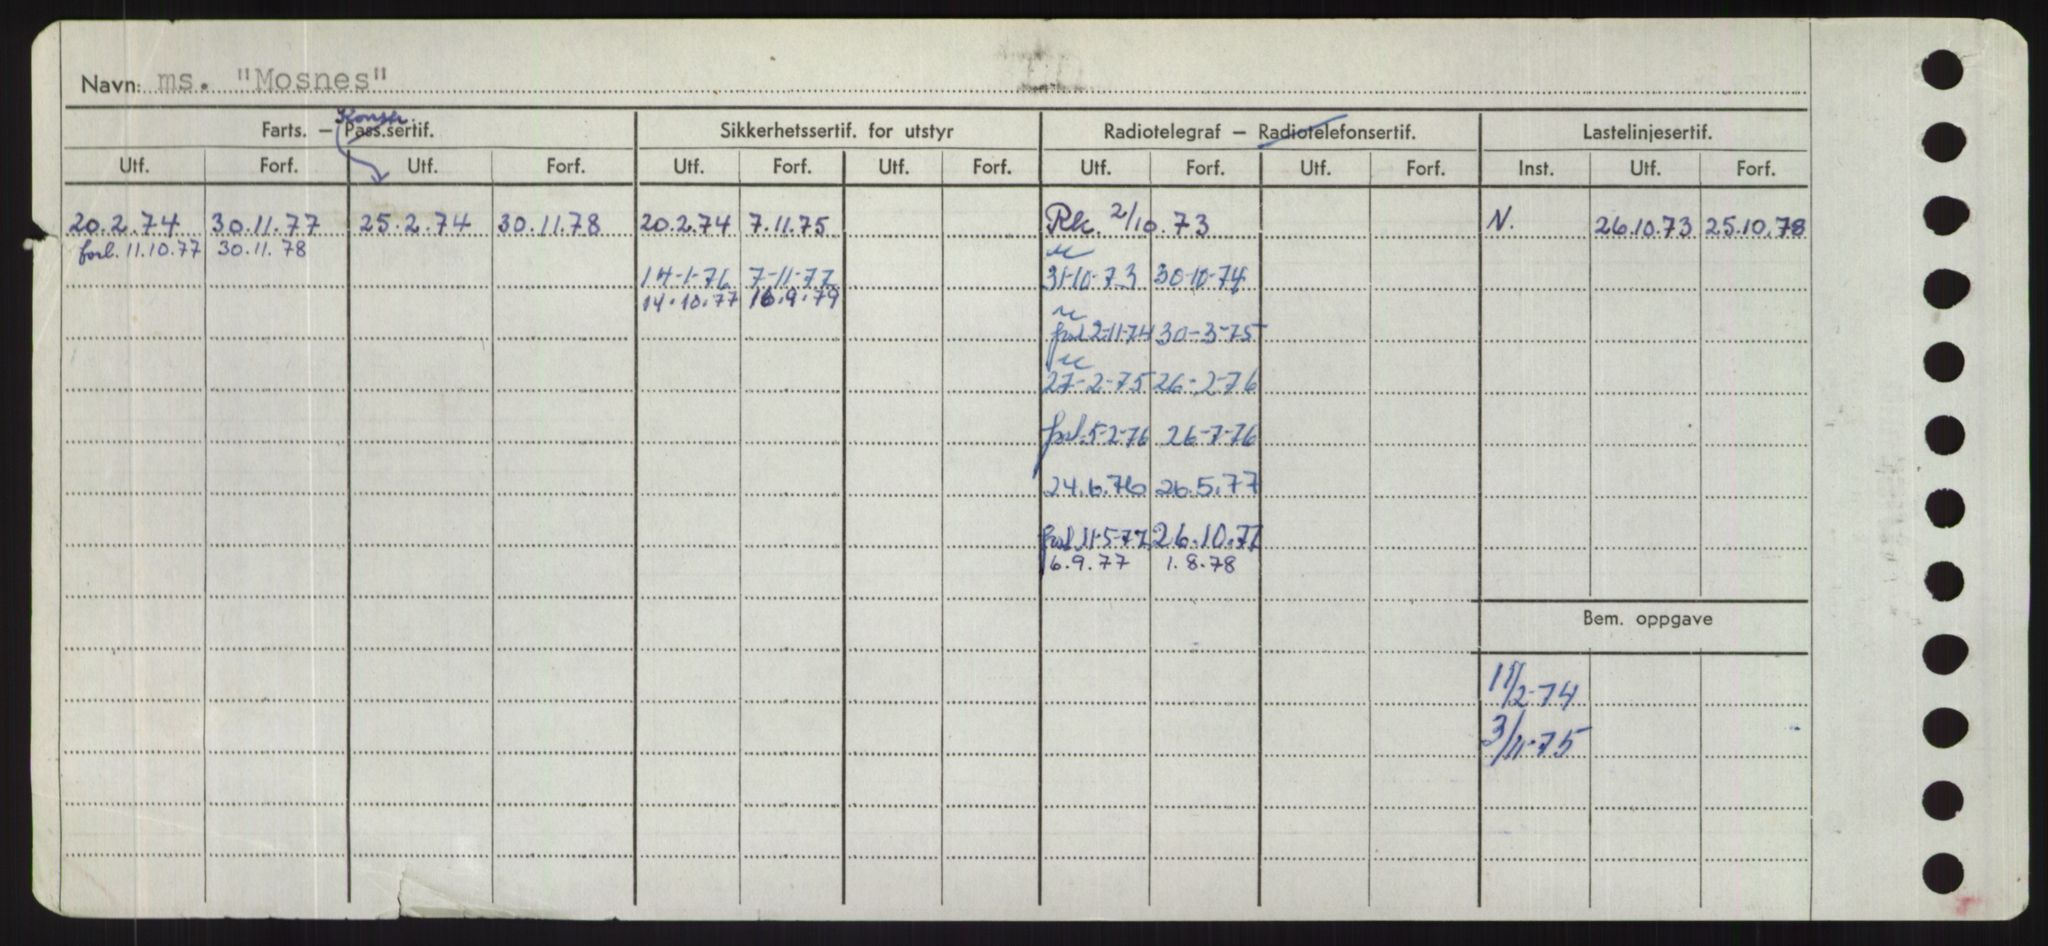 Navn: ms. "Mosnes"
Konstr.
Farts. – Pass.sertif. Sikkerhetssertif. for utstyr Radiotelegraf – Radiotelefonsertif. Lastelinjesertif.
Utf. Forf. Utf. Forf. Utf. Forf. Utf. Forf. Utf. Forf. Utf. Forf. Inst. Utf. Forf.
20.2.74 30.11.77 25.2.74 30.11.78 20.2.74 7.11.75 Rk. 2/10.73 N. 26.10.73 25.10.78
forl. 11.10.77 30.11.78
14-1-76 7-11-77 31-10-73 30-10-74
14.10.77 16.9.79
forl 2-11-74 30-3-75
27-2-75 26-2-76
forl. 5-2-76 26-7-76
24.6.76 26.5.77
forl. 11-5-77 26.10.77
6.9.77 1.8.78
Bem. oppgave
11/2-74
3/11-75